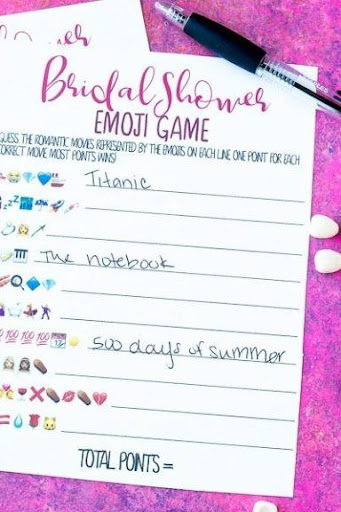 Bridal Shower
EMOJI GAME
GUESS THE ROMANTIC MOVIES REPRESENTED BY THE EMOJIS ON EACH LINE ONE POINT FOR EACH
CORRECT MOVE MOST POINTS WINS!
Titanic
The notebook
💯💯💯💯💯 500 days of summer
TOTAL POINTS =